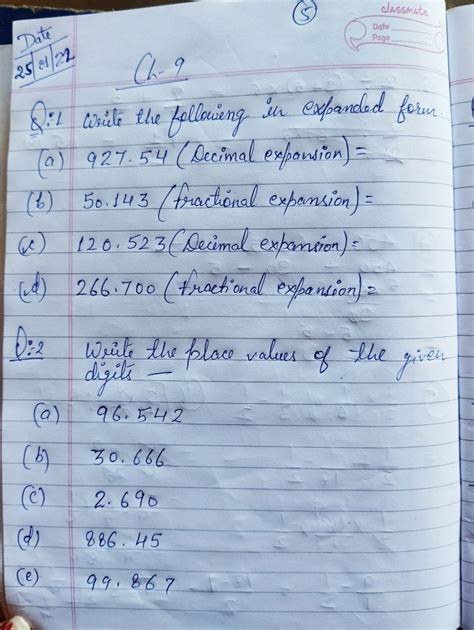 5
classmate
Date
Page
Date
25/01/22
Ch-9
Q:1 Write the following in expanded form.
(a) 927.54 (Decimal expansion) =
(b) 50.143 (fractional expansion) =
(c) 120.523 (Decimal expansion) =
(d) 266.700 (fractional expansion) =
Q:2 Write the place values of the given
digits —
(a) 96.542
(b) 30.666
(c) 2.690
(d) 886.45
(e) 99.867